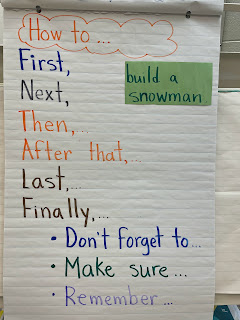 How to ...
First,
build a
snowman.
Next,
Then,...
After that,...
Last,...
Finally,...
• Don't forget to...
• Make sure ...
• Remember ...